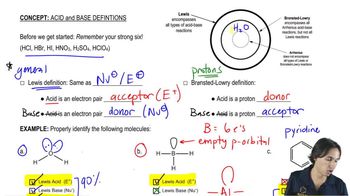 CONCEPT: ACID and BASE DEFINTIONS
Before we get started: Remember your strong six!
(HCl, HBr, HI, HNO3, H2SO4, HClO4)
Lewis
encompasses
all types of acid-base
reactions
H2O
Bronsted-Lowry
encompasses all
Arrhenius acid-base
reactions, but not all
Lewis reactions
Arrhenius
does not encompass
all types of Lewis or
Bronsted-Lowry reactions
*general
protons
□ Lewis definition: Same as Nu⊖/E⊕
□ Bronsted-Lowry definition:
• Acid is an electron pair acceptor (E⊕)
• Acid is a proton donor
Base • Acid is an electron pair donor (Nu⊖)
Base • Acid is a proton acceptor
EXAMPLE: Properly identify the following molecules:
B = 6e's
empty p-orbital
pyridine
a.
H O H
b.
H B H
H
Lewis Acid (E+)
Lewis Base (Nu-)
90%
Lewis Acid (E+)
Lewis Base (Nu-)
Al